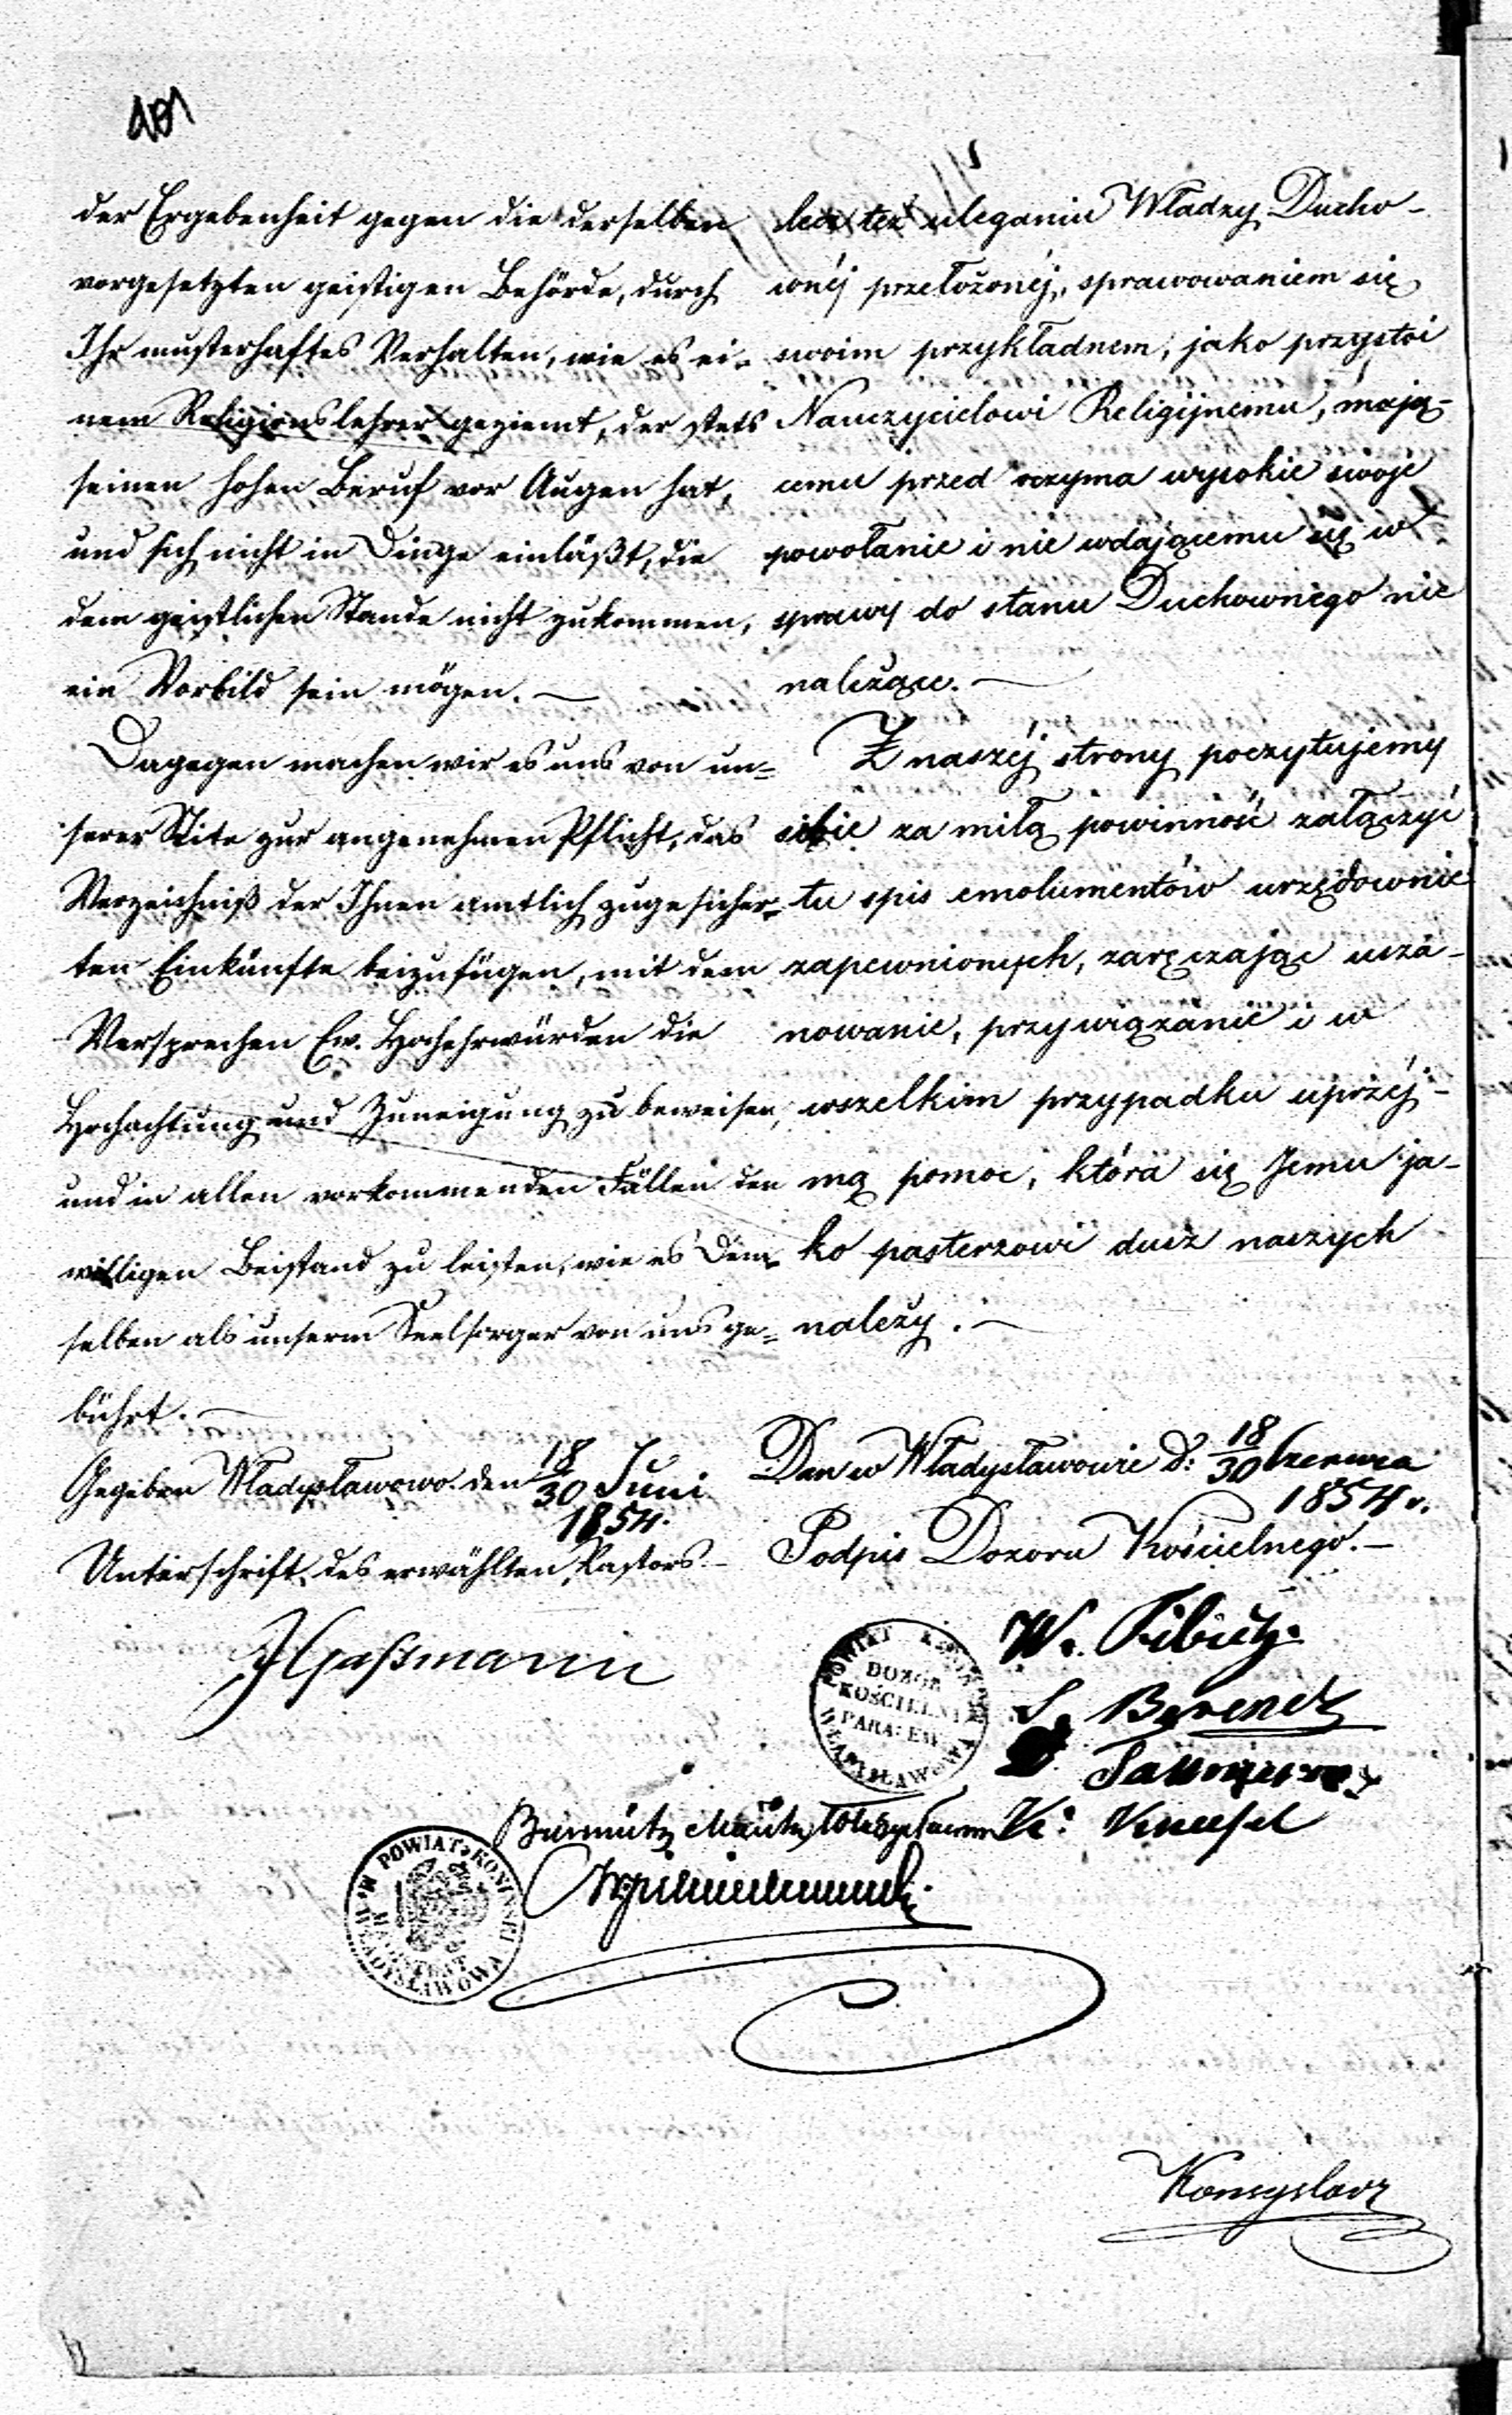 der Ergebenheit gegen die derselben
vorgesetzten geistigen Behörde, durch
Ihr musterhaftes Verhalten, wie es ei-
nem Religionslehrer geziemt, der stets
seinen hohen Beruf vor Augen hat,
und sich nicht in Dinge einläßt, die
dem geistlichen Stande nicht zukommen,
ein Vorbild sein mögen. —
Dagegen machen wir es uns von un=
serer Seite zur angenehmen Pflicht, das
Verzeichniß der Ihnen amtlich zugesicher-
ten Einkünfte beizufügen, mit dem
Versprechen Ew. Hochehrwürden die
Hochachtung und Zuneigung zu beweisen,
und in allen vorkommenden Fällen den
willigen Beistand zu leisten, wie es Dem-
selben als unserm Seelsorger von uns ge=
bührt. —
Gegeben Władysławowo. den 18/30 Juni
1854.
Unterschrift des erwählten Pastors. —
lecz też uleganiu Władzy Ducho-
wnéj przełożonéj, sprawowaniem się
swoim przykładnem, jako przystoi
Nauczycielowi Religijnemu, mają-
cemu przed oczyma wysokie swoje
powołanie i nie wdającemu się w
sprawy do stanu Duchownego nie
należące. —
Z naszéj strony poczytujemy
sobie za miłą powinność załączyć
tu spis emolumentów urzędownie
zapewnionych, zaręczając usza-
nowanie, przywiązanie i w
wszelkim przypadku uprzéj-
mą pomoc, która się Jemu ja-
ko pasterzowi dusz naszych
należy. —
Dan w Władysławowie d: 18/30 Czerwca
1854 r.
Podpis Dozoru Kościelnego. —
POWIAT
DOZÓR
KOŚCIELNY
PARA: EW.
WŁADYSŁAWOWA
S. Berendt
K: Kneifel
POWIAT KONIŃSKI
MAGISTRAT
M. WŁADYSŁAWOWA